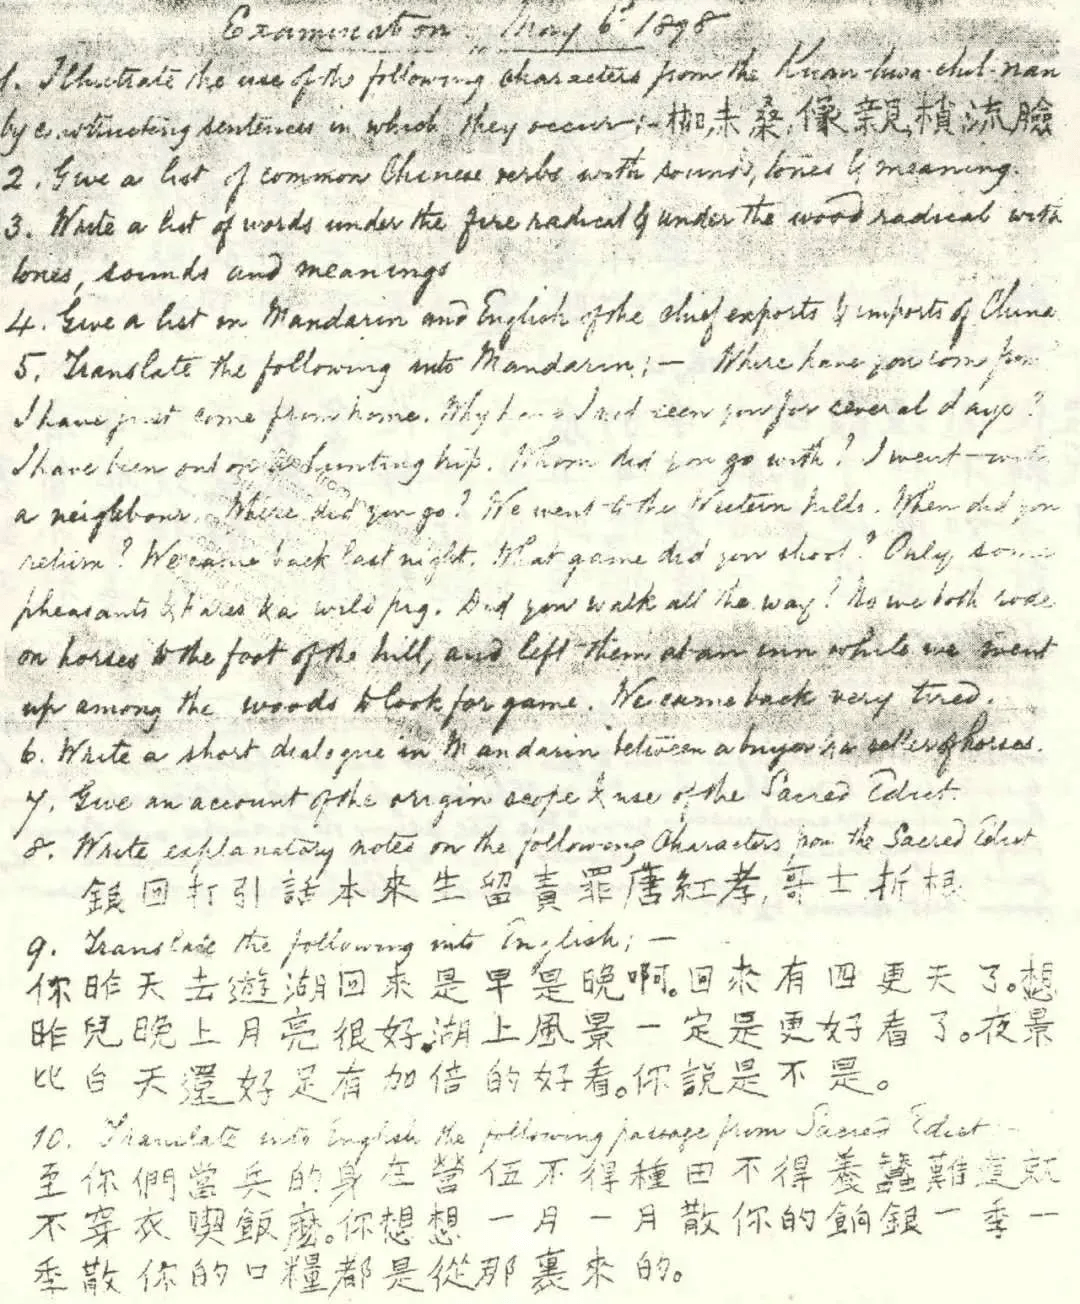 Examination, May 6th 1898
1. Illustrate the use of the following characters from the Kuan-hwa-chih-nan
by constructing sentences in which they occur:— 未桑,像親,檳流臉
2. Give a list of common Chinese verbs with sounds, tones & meaning.
3. Write a list of words under the fire radical & under the wood radical with
tones, sounds and meanings
4. Give a list in Mandarin and English of the chief exports & imports of China
5. Translate the following into Mandarin;— Where have you come from
I have just come from home. Why have I not seen you for several days?
I have been out on a hunting trip. Whom did you go with? I went with
a neighbour. Where did you go? We went to the Western hills. When did you
return? We came back last night. What game did you shoot? Only some
pheasants & hares & a wild pig. Did you walk all the way? No we both rode
on horses to the foot of the hill, and left them at an inn while we went
up among the woods to look for game. We came back very tired.
6. Write a short dialogue in Mandarin between a buyer & a seller of horses.
7. Give an account of the origin scope & use of the Sacred Edict.
8. Write explanatory notes on the following Characters from the Sacred Edict
銀回打引話本來生留責罪唐紅孝,哥士折根
9. Translate the following into English;—
你昨天去遊湖回來是早是晚啊。回來有四更天了。想
昨兒晚上月亮很好,湖上風景一定是更好看了。夜景
比白天還好足有加倍的好看。你說是不是。
10. Translate into English the following passage from Sacred Edict
至你們當兵的身在營伍不得種田不得養蠶難道就
不穿衣喫飯麼。你想想一月一月散你的餉銀一季一
季散你的口糧都是從那裏來的。